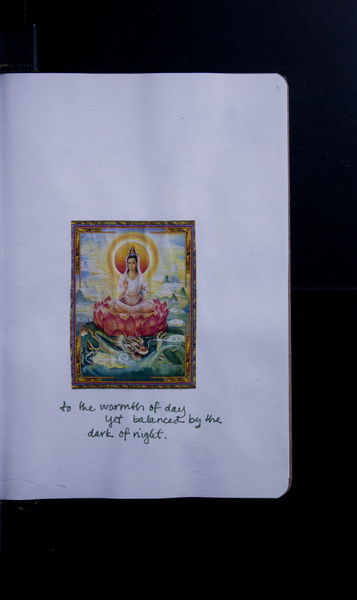 to the warmth of day
yet balanced by the
dark of night.